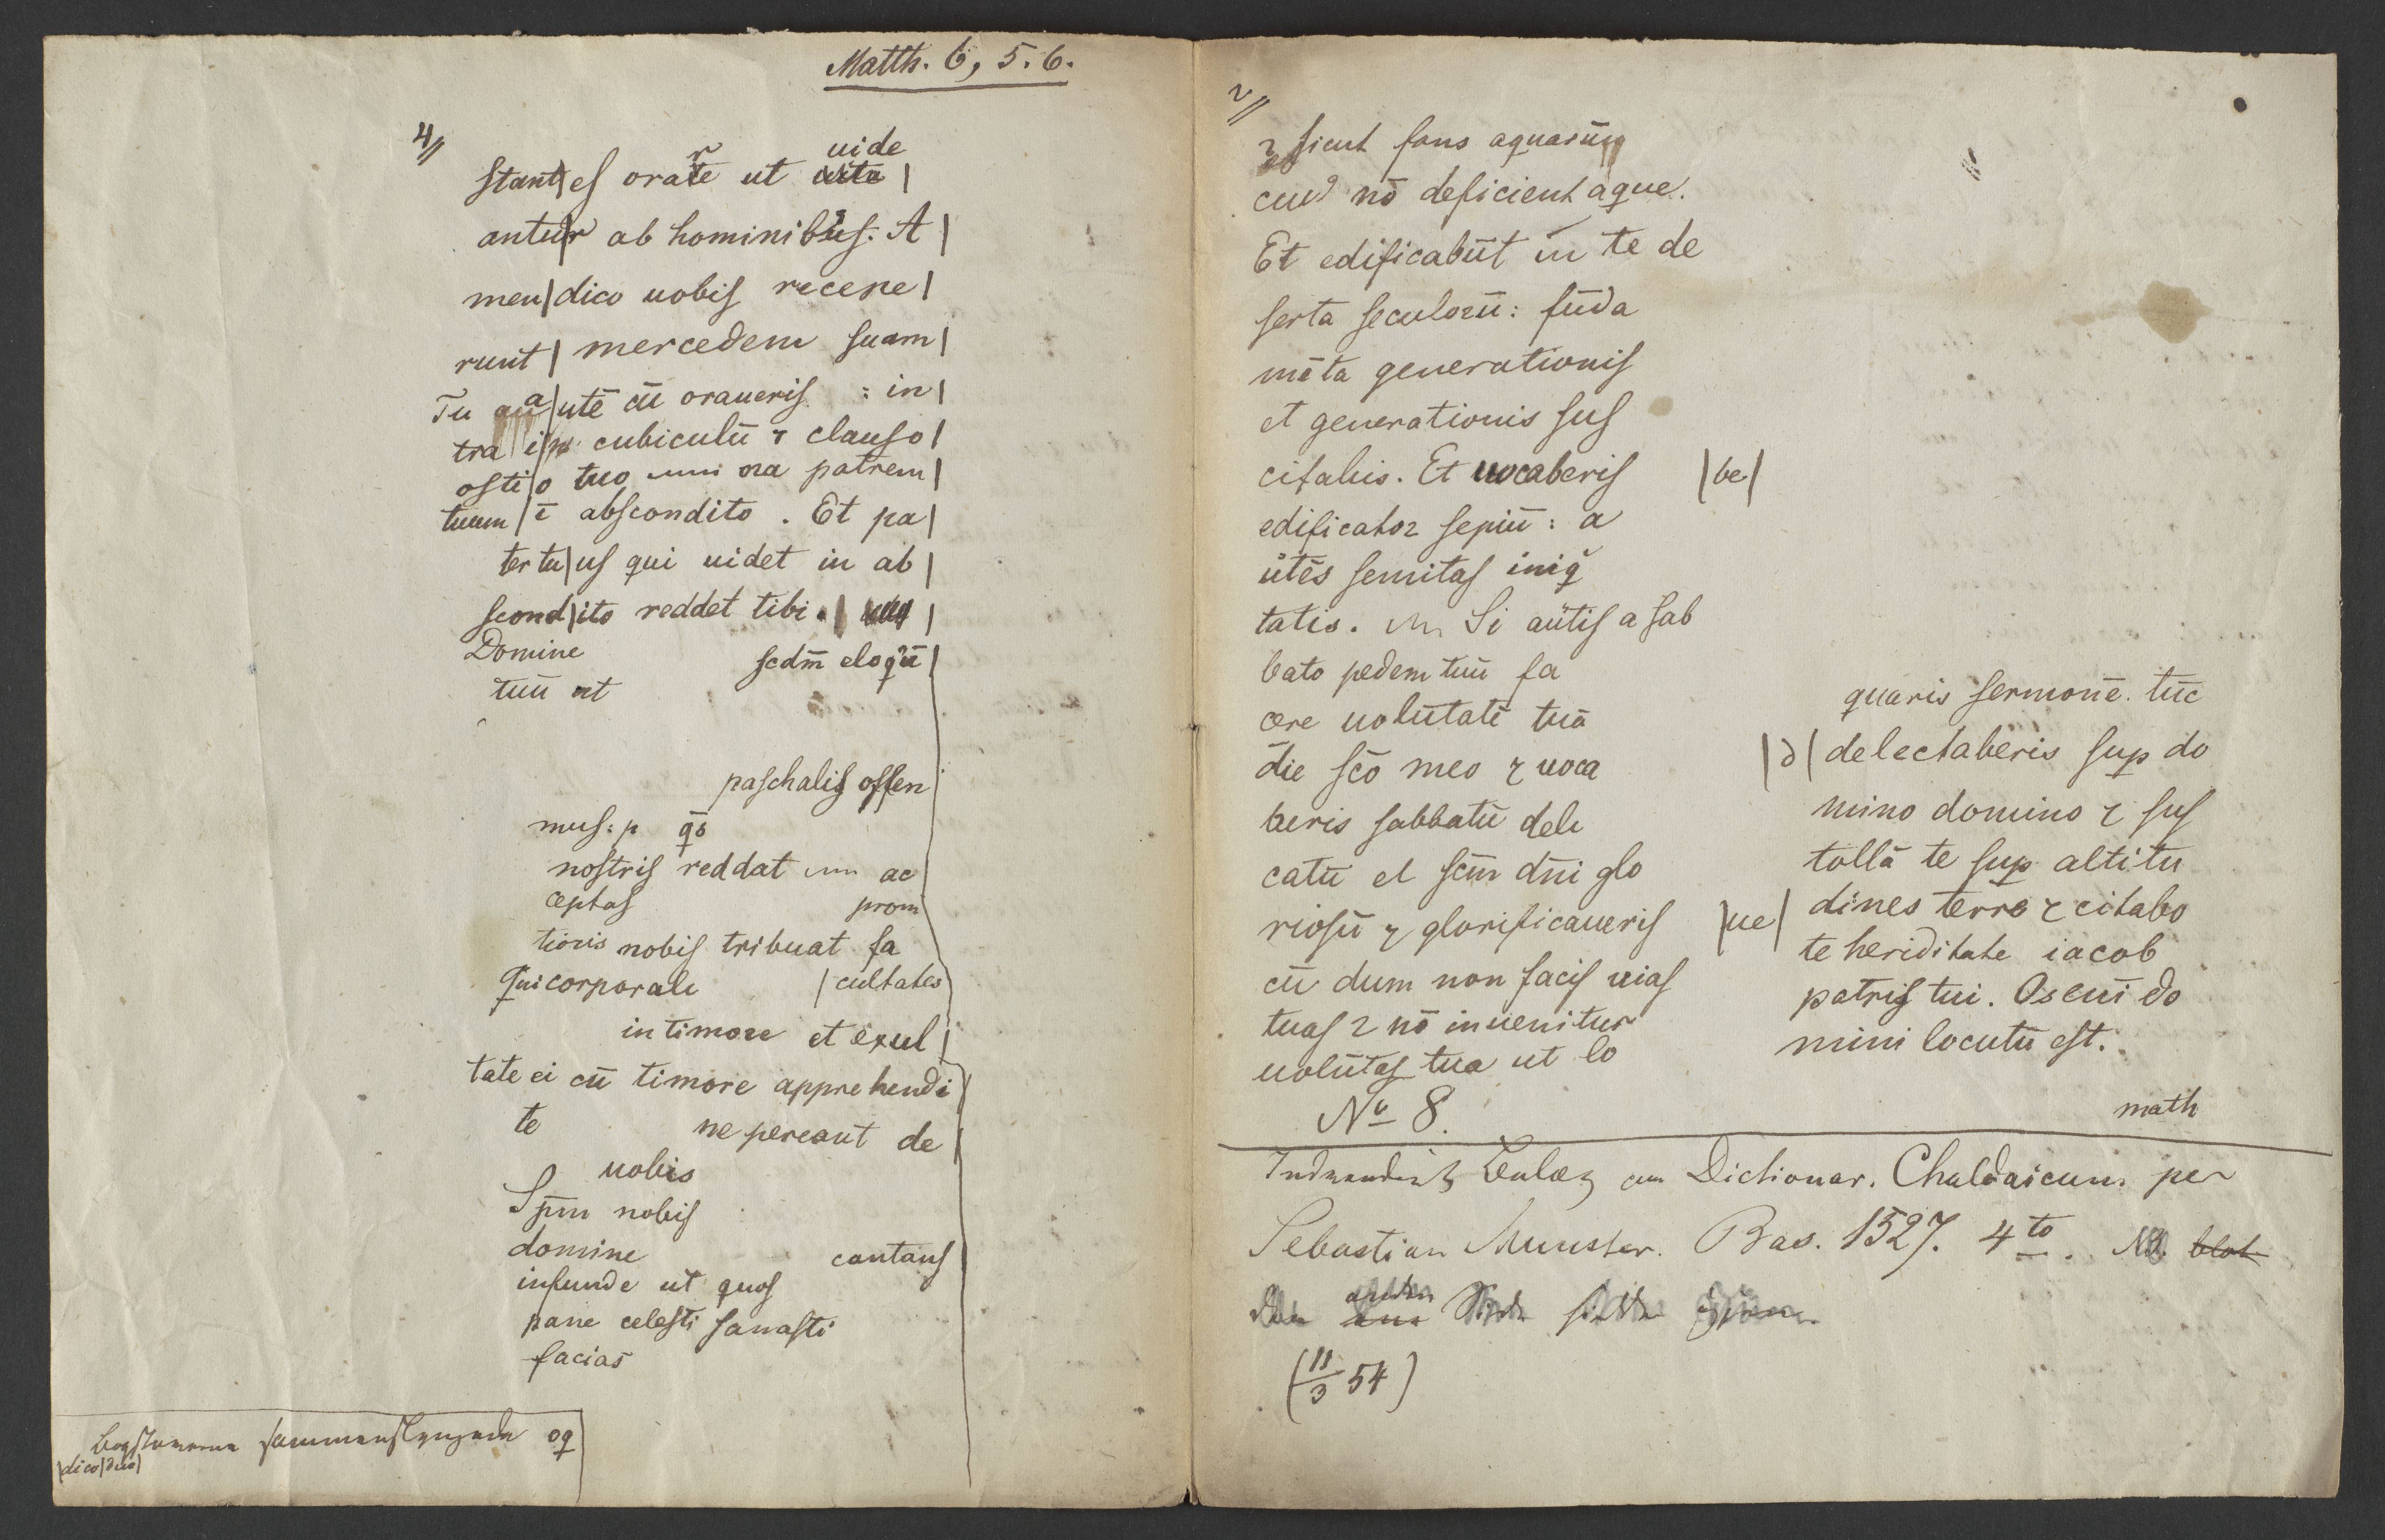 Matth. 6, 5. 6.
4//
stant|es orate ut uide |
antu|r ab hominibus. A |
men| dico uobis recepe |
runt | mercedem suam |
Tu a|utē cū oraueris : in |
tra i|n cubiculū ⁊ clauso |
osti|o tuo ora patrem |
tuum | ī abscondito . Et pa |
ter tu|us qui uidet in ab |
scond|ito reddet tibi . | |
Domine scdm̄ eloqū |
tuū ut
paschalis offen
mus: p qs̄
nostris reddat ac
ceptas prom
tionis nobis tribuat fa
Qui corporali | cultates
in timore et exul |
tate ei cū timore apprehendi
te ne pereant de
uobis
Spm̄ nobis
domine cantans
infunde ut quos
pane celesti sanasti
facias
bogstaverna sammanslyngade og
|dico|duo|
2//
⁊ sicut fons aquarūm
cui9 nō deficient aque.
Et edificabūt in te de
serta seculorū : fūda
mēta generationis
et generationis sus
citabis. Et uocaberis |be|
edificator sepiū : a
ūtēs semitas iniq̄
tatis. Si aūtis a sab
bato pedem tuū fa
cere uolūtatē tuā
die scō meo ⁊ uoca
ueris sabbatū deli
catū et scm̄ dn̄i glo
riosū ⁊ glorificaueris |ue|
cū dum non facis uias
tuas ⁊ nō inuenitur
uolūtas tua ut lo
quaris sermonē. tūc
|d| delectaberis sup do
mino domino ⁊ sus
tollā te sup altitu
dines terre ⁊ citabo
te heriditate iacob
patris tui. Os eni do
mini locutū est.
No 8. math
Dictionar. Chaldaicum per
Sebastian Munster. Bas. 1527. 4to. NB. blot
den anden Side sidder
(11/3 54)